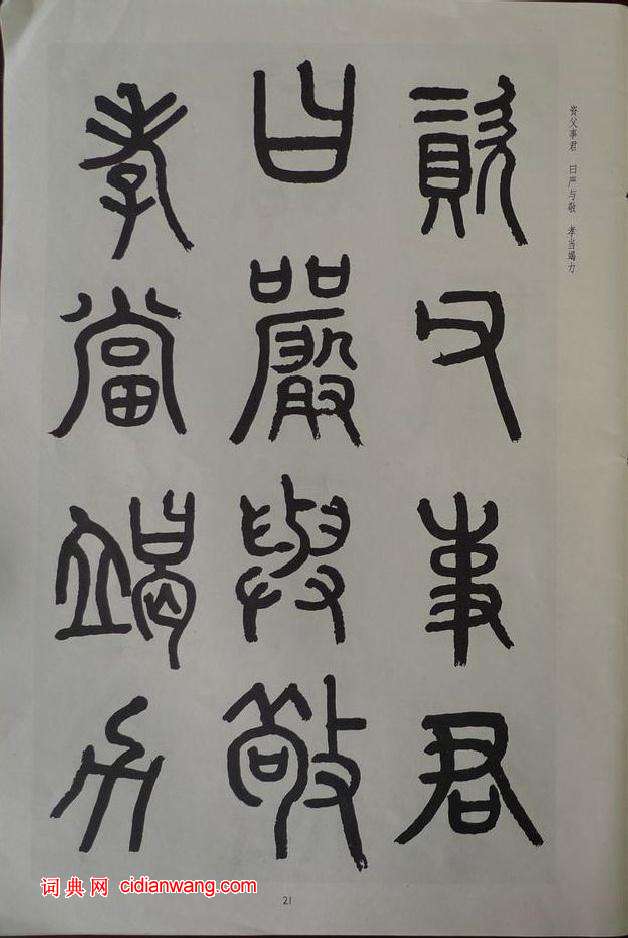 资父事君 曰严与敬 孝当竭力
資父事君
曰嚴與敬
孝當竭力
词典网 cidianwang.com
21